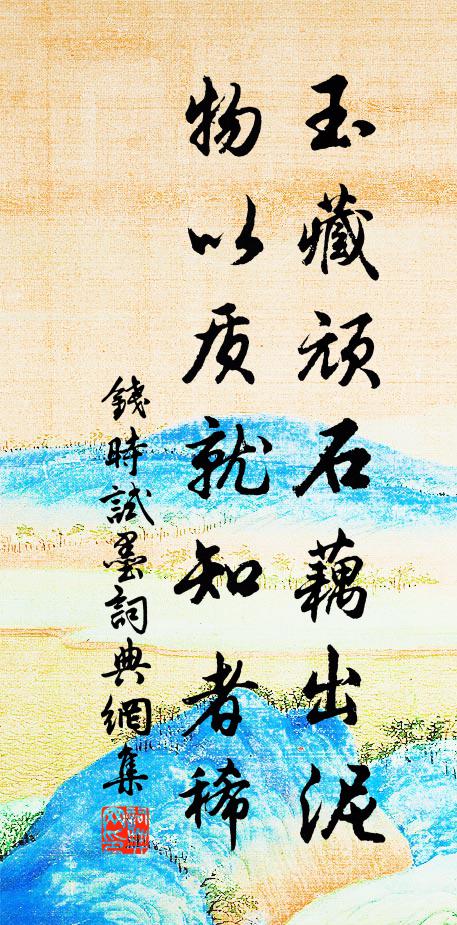 玉藏頑石藕出泥
物以质就知者稀
錢時試墨詞典網集